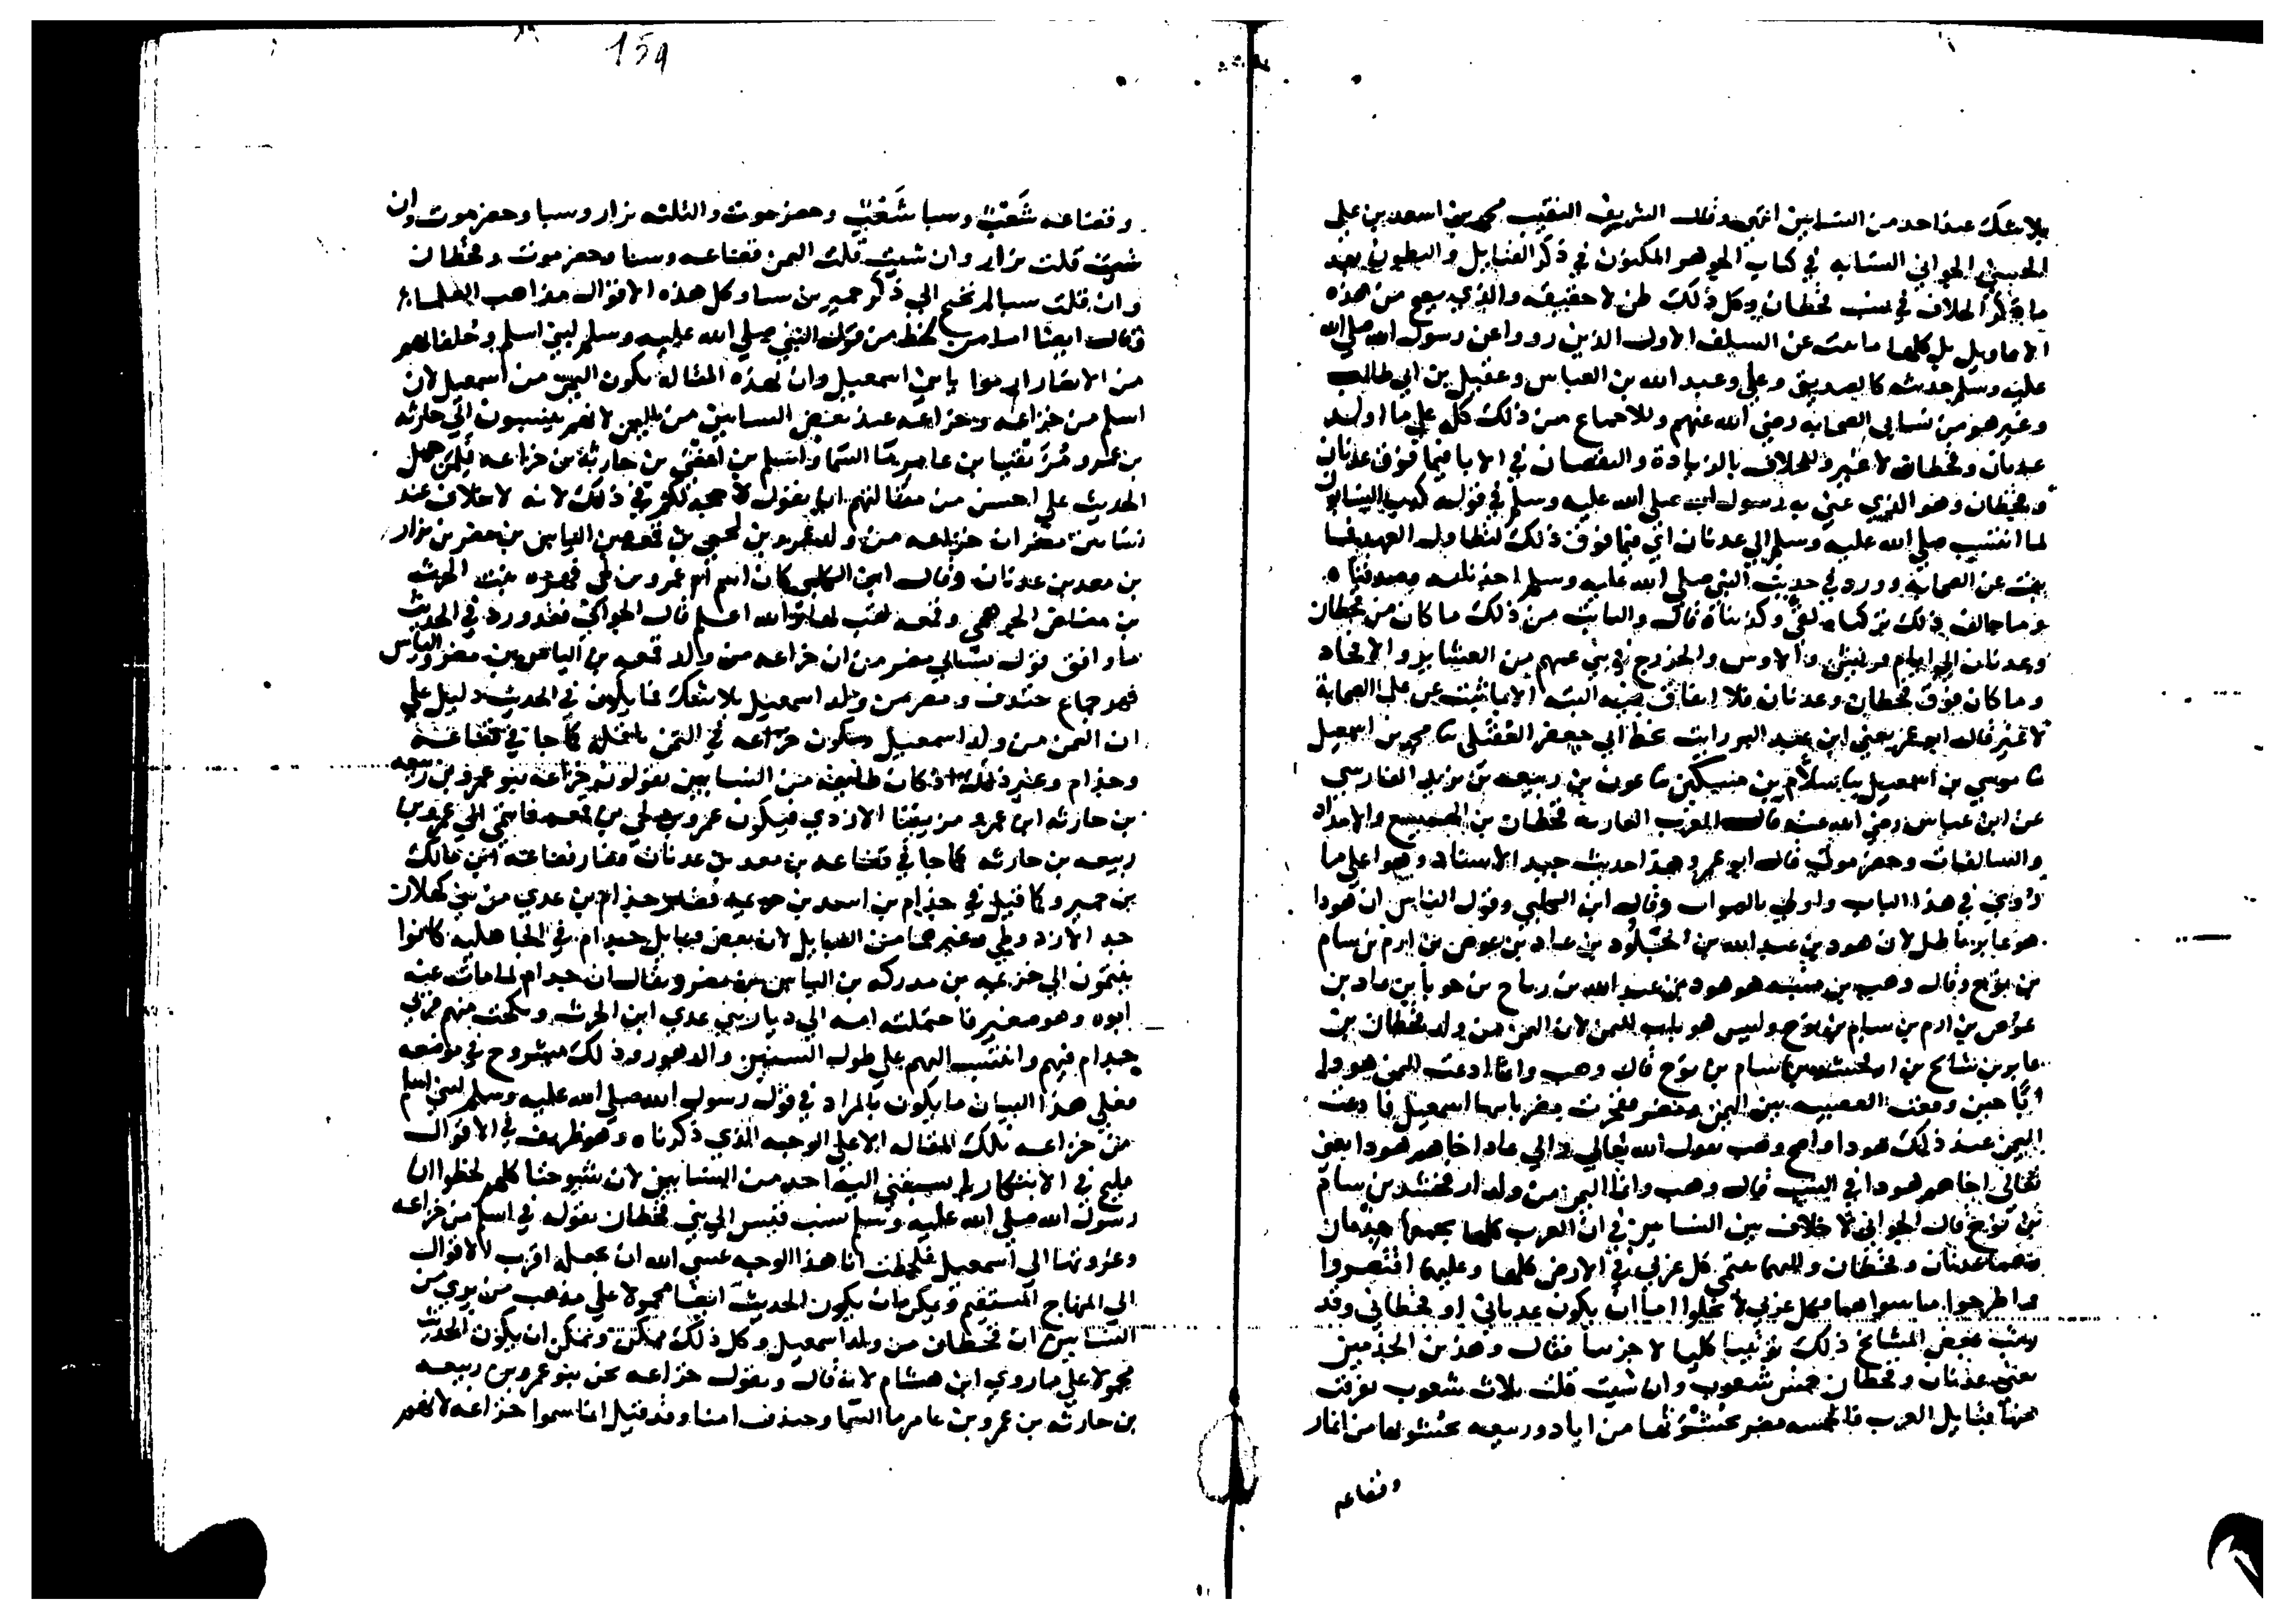 بلا شك عند احد من النسابين انتهى وقال الشريف النقيب محمد بن اسعد بن علي
الحسيني الجواني النسابه في كتاب الجوهر المكنون في ذكر القبايل والبطون بعد
ما ذكر الخلاف في نسب قحطان وكل ذلك ظن لا حقيقه والذي يصح من هذه
الاقاويل بل كلها ما ثبت عن السلف الاول الذين رووا عن رسول الله صلى الله
عليه وسلم حديثه كالصديق وعلي وعبد الله بن العباس وعقيل بن ابي طالب
وغيرهم من نسابي الصحابه رضي الله عنهم وللاجماع من ذلك كله على ما اولد
عدنان وقحطان لا غير وللخلاف بالزيادة والنقصان في الابا فيما فوق عدنان
وقحطان وهو الذي عنى به رسول الله صلى الله عليه وسلم في قوله كذب النسابون
لما انتسب صلى الله عليه وسلم الى عدنان اي فيما فوق ذلك لتطاول العهد فما
ثبت عن الصحابة وورد في حديث النبي صلى الله عليه وسلم اخذناه وصدقناه
وما خالف ذلك تركناه وكذبناه قال والثابت من ذلك ما كان من قحطان
وعدنان الى ايام قريش والاوس والخزرج ومن عمهم من العشاير والافخاد
وما كان فوق قحطان وعدنان فلا اتفاق فيه البته الا ما ثبت عن علي الصحابة
لا غير قال ابو عمر يعني ابن عبد البر رايت بخط ابي جعفر العقيلي ثنا محمد بن اسمعيل
ثنا موسى بن اسمعيل ثنا سلام بن مسكين ثنا عون بن ربيعه بن يزيد الفارسي
عن ابن عباس رضي الله عنه قال العرب العاربه قحطان بن الهميسع والامداد
والسالفات وحضرموت قال ابو عمر وهذا حديث جيد الاسناد وهو اعلى ما
روي في هذا الباب واولى بالصواب وقال ابن الكلبي وقول الناس ان هودا
هو عابر باطل لان هود بن عبد الله بن الخلود بن عاد بن عوص بن ارم بن سام
بن نوح وقال وهب بن منبه هو هود بن عبد الله بن رباح بن حوبا بن عاد بن
عوص بن ارم بن سام بن نوح وليس هو باب لليمن لان اليمن من ولد قحطان بن
عابر بن شالح بن ارفخشد بن سام بن نوح قال وهب وانما ادعت اليمن هودا
ابا حين وقعت العصبيه بين اليمن ومضر وفخرت مضر بابيها اسمعيل فادعت
اليمن عند ذلك هودا بقول الله تعالى والى عاد اخاهم هودا يعني
تعالى اخاهم هودا في النسب قال وهب وانما اليمن من ولد ارفخشد بن سام
بن نوح قال الجواني لا خلاف بين النسابين في ان العرب كلها يجمعها جذمان
وهما عدنان وقحطان واليهما ينتمي كل عربي في الارض كلها وعليهما اقتصروا
واطرحوا ما سواهما فكل عربي لا يخلوا اما ان يكون عدناني او قحطاني وقد
رتب بعض المشايخ ذلك ترتيبا كليا لا جزييا فقال وهذين الجذمين
يعني عدنان وقحطان خمس شعوب وان شيت قلت ثلاث شعوب تفرقت
عنها قبايل العرب فالخمسه مضر بحشوتها من اياد وربيعه بحشوتها من انمار
وقضاعه
159
وقضاعه شعب وسبا شعب وحضرموت والثلثه نزار وسبا وحضرموت وان
شيت قلت نزار وان شيت قلت اليمن قضاعه وسبا وحضرموت وقحطان
وان قلت سبا لم تحتج الى ذكر حمير بن سبا وكل هذه الاقوال مذاهب العلماء
وقال ايضا من قول النبي صلى الله عليه وسلم لبني اسلم وخلفالهم
من الانصار ارموا يا بني اسمعيل وان بهذه المقاله يكون اليمن من اسمعيل لان
اسلم من خزاعه وخزاعه عند بعض النسابين من اليمن لانهم ينسبون الى حارثه
بن عمرو مزيقيا بن عامر ماء السما واسلم بن افصى بن حارثة بن خزاعه فلمن حمل
الحديث على احسن من مقالتهم ان يقول لا حجه لكم في ذلك لانه لا خلاف عند
نسابين مضر ان خزاعه من ولد عمرو بن لحي بن قمعه بن الياس بن مضر بن نزار
بن معد بن عدنان وقال ابن الكلبي كان اسم ام عمرو بن لحي فهيره بنت الحرث
بن مضاض الجرهمي وقمعه لقب لها والله اعلم قال الجواني فقد ورد في الحديث
ما وافق قول نسابي مضر من ان خزاعه من ولد قمعه بن الياس بن مضر والياس
فهو جماع خندف ومضر من ولد اسمعيل بلا شك فما يكون في الحديث دليل على
ان اليمن من ولد اسمعيل ويكون خزاعه في اليمن كما جا في قضاعه
وجذام وغير ذلك اذ كان طايفه من النسابين يقولون خزاعه بنو عمرو بن ربيعه
بن حارثه ابن عمرو مزيقيا الازدي فيكون عمرو بن لحي بن قمعه فانتمى الى عمرو بن
ربيعه بن حارثه كما جا في قضاعه بن معد بن عدنان فصار قضاعه ابن مالك
بن حمير وكما قيل في جذام بن اسد بن خزيمه فصار جذام بن عدي من بني كهلان
جد الازد وطي وغيرهما من القبايل لان بعض قبايل جذام في الجاهليه كانوا
ينتمون الى خزيمه بن مدركه بن الياس بن مضر ويقال ان جذام لما مات عنه
ابوه وهو صغير فاحتملته امه الى ديار بني عدي ابن الحرث ونكحت منهم فربي
جذام فيهم وانتسب اليهم على طول السنين والدهور وذلك مشروح في موضعه
فعلى هذا البيان ما يكون المراد في قول رسول الله صلى الله عليه وسلم لبني اسلم
من خزاعه تلك المقاله الا على الوجه الذي ذكرناه وهو ظريف في الاقوال
مليح في الابتكار لم يسبقني اليه احد من النسابين لان شيوخنا كلهم لحظوا ان
رسول الله صلى الله عليه وسلم نسب قيس الى بني قحطان بقوله في اسلم من خزاعه
وعزوتها الى اسمعيل فلحظت انا هذا الوجه عسى الله ان يجعله اقرب الاقوال
الى المنهاج المستقيم ويمكن ان يكون الحديث ايضا محمولا على مذهب من يرى من
النسابين ان قحطان من ولد اسمعيل وكل ذلك ممكن ويمكن ان يكون الحديث
محمولا على ما روي ابن هشام لانه قال ويقول خزاعه نحن بنو عمرو بن ربيعه
بن حارثه بن عمرو بن عامر ماء السما وخندف امنا وقد قيل انما سموا خزاعه لانهم